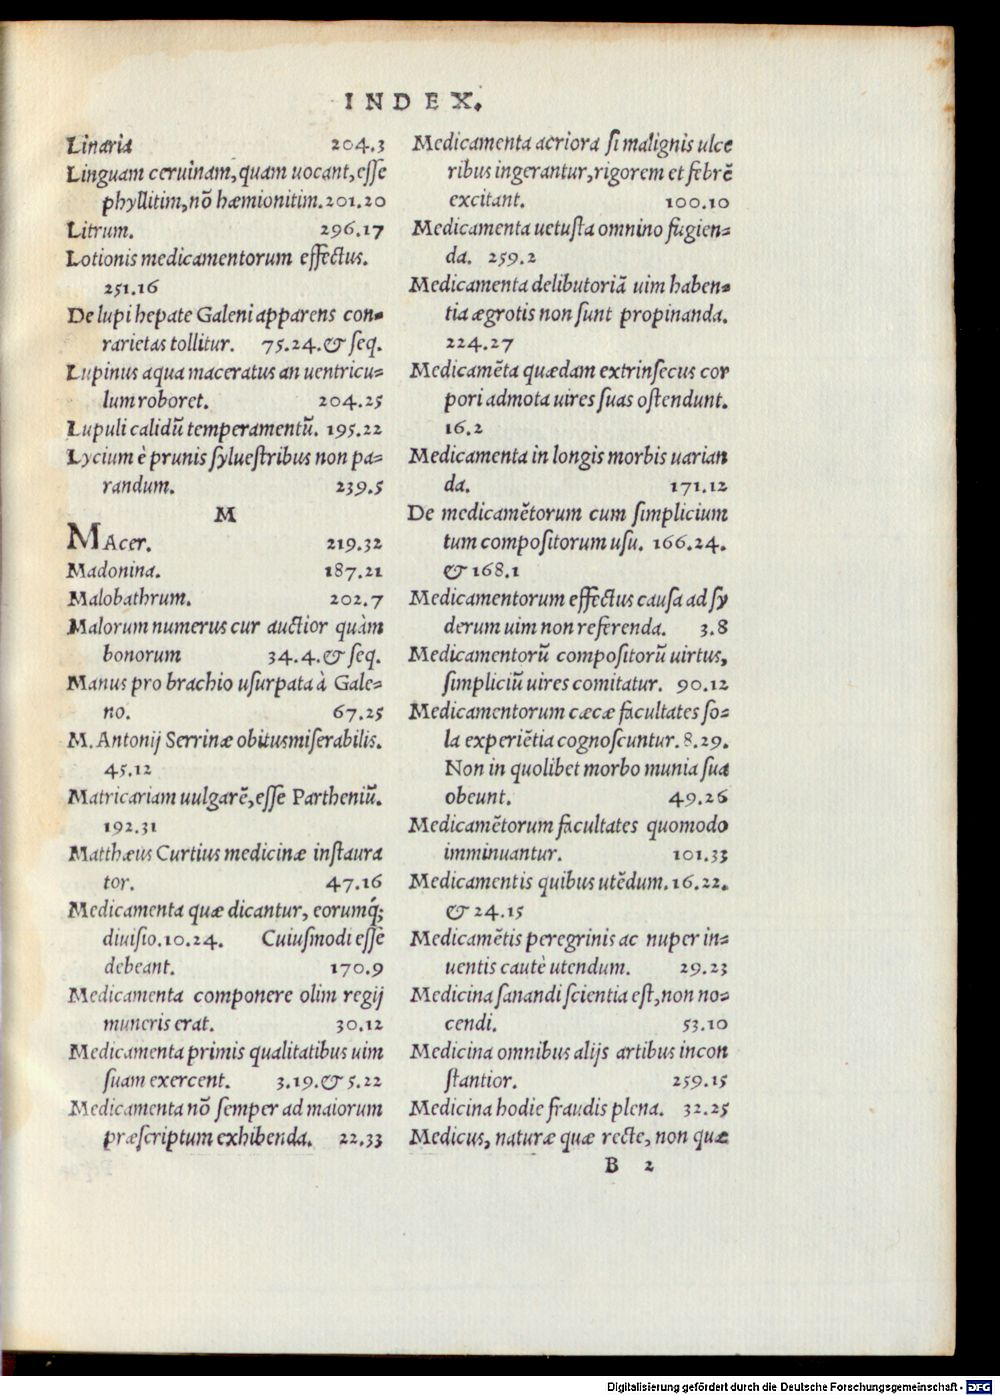 INDEX.
Linaria 204.3
Linguam ceruinam, quam uocant, eſſe
phyllitim, nõ hæmionitim. 201.20
Litrum. 296.17
Lotionis medicamentorum effectus.
251.16
De lupi hepate Galeni apparens con⸗
rarietas tollitur. 75.24.& ſeq.
Lupinus aqua maceratus an uentricu⸗
lum roboret. 204.25
Lupuli calidũ temperamentũ. 195.22
Lycium è prunis ſylueſtribus non pa⸗
randum. 239.5
M
MAcer. 219.32
Madonina. 187.21
Malobathrum. 202.7
Malorum numerus cur auctior quàm
bonorum 34.4.& ſeq.
Manus pro brachio uſurpata à Gale⸗
no. 67.25
M. Antonij Serrinæ obitus miſerabilis.
45.12
Matricariam uulgarẽ, eſſe Partheniũ.
192.31
Matthæus Curtius medicinæ inſtaura
tor. 47.16
Medicamenta quæ dicantur, eorumq́;
diuiſio. 10.24. Cuiuſmodi eſſe
debeant. 170.9
Medicamenta componere olim regij
muneris erat. 30.12
Medicamenta primis qualitatibus uim
ſuam exercent. 3.19.& 5.22
Medicamenta nõ ſemper ad maiorum
præſcriptum exhibenda. 22.33
Medicamenta acriora ſi malignis ulce
ribus ingerantur, rigorem et febrẽ
excitant. 100.10
Medicamenta uetuſta omnino fugien⸗
da. 259.2
Medicamenta delibutoriã uim haben⸗
tia ægrotis non ſunt propinanda.
224.27
Medicamẽta quædam extrinſecus cor
pori admota uires ſuas oſtendunt.
16.2
Medicamenta in longis morbis uarian
da. 171.12
De medicamẽtorum cum ſimplicium
tum compoſitorum uſu. 166.24.
& 168.1
Medicamentorum effectus cauſa ad ſy
derum uim non referenda. 3.8
Medicamentorũ compoſitorũ uirtus,
ſimpliciũ uires comitatur. 90.12
Medicamentorum cæcæ facultates ſo⸗
la experiẽtia cognoſcuntur. 8.29.
Non in quolibet morbo munia ſua
obeunt. 49.26
Medicamẽtorum facultates quomodo
imminuantur. 101.33
Medicamentis quibus utẽdum. 16.22.
& 24.15
Medicamẽtis peregrinis ac nuper in⸗
uentis cautè utendum. 29.23
Medicina ſanandi ſcientia eſt, non no⸗
cendi. 53.10
Medicina omnibus alijs artibus incon
ſtantior. 259.15
Medicina hodie fraudis plena. 32.25
Medicus, naturæ quæ recte, non quæ
B 2
Digitalisierung gefördert durch die Deutsche Forschungsgemeinschaft - DFG